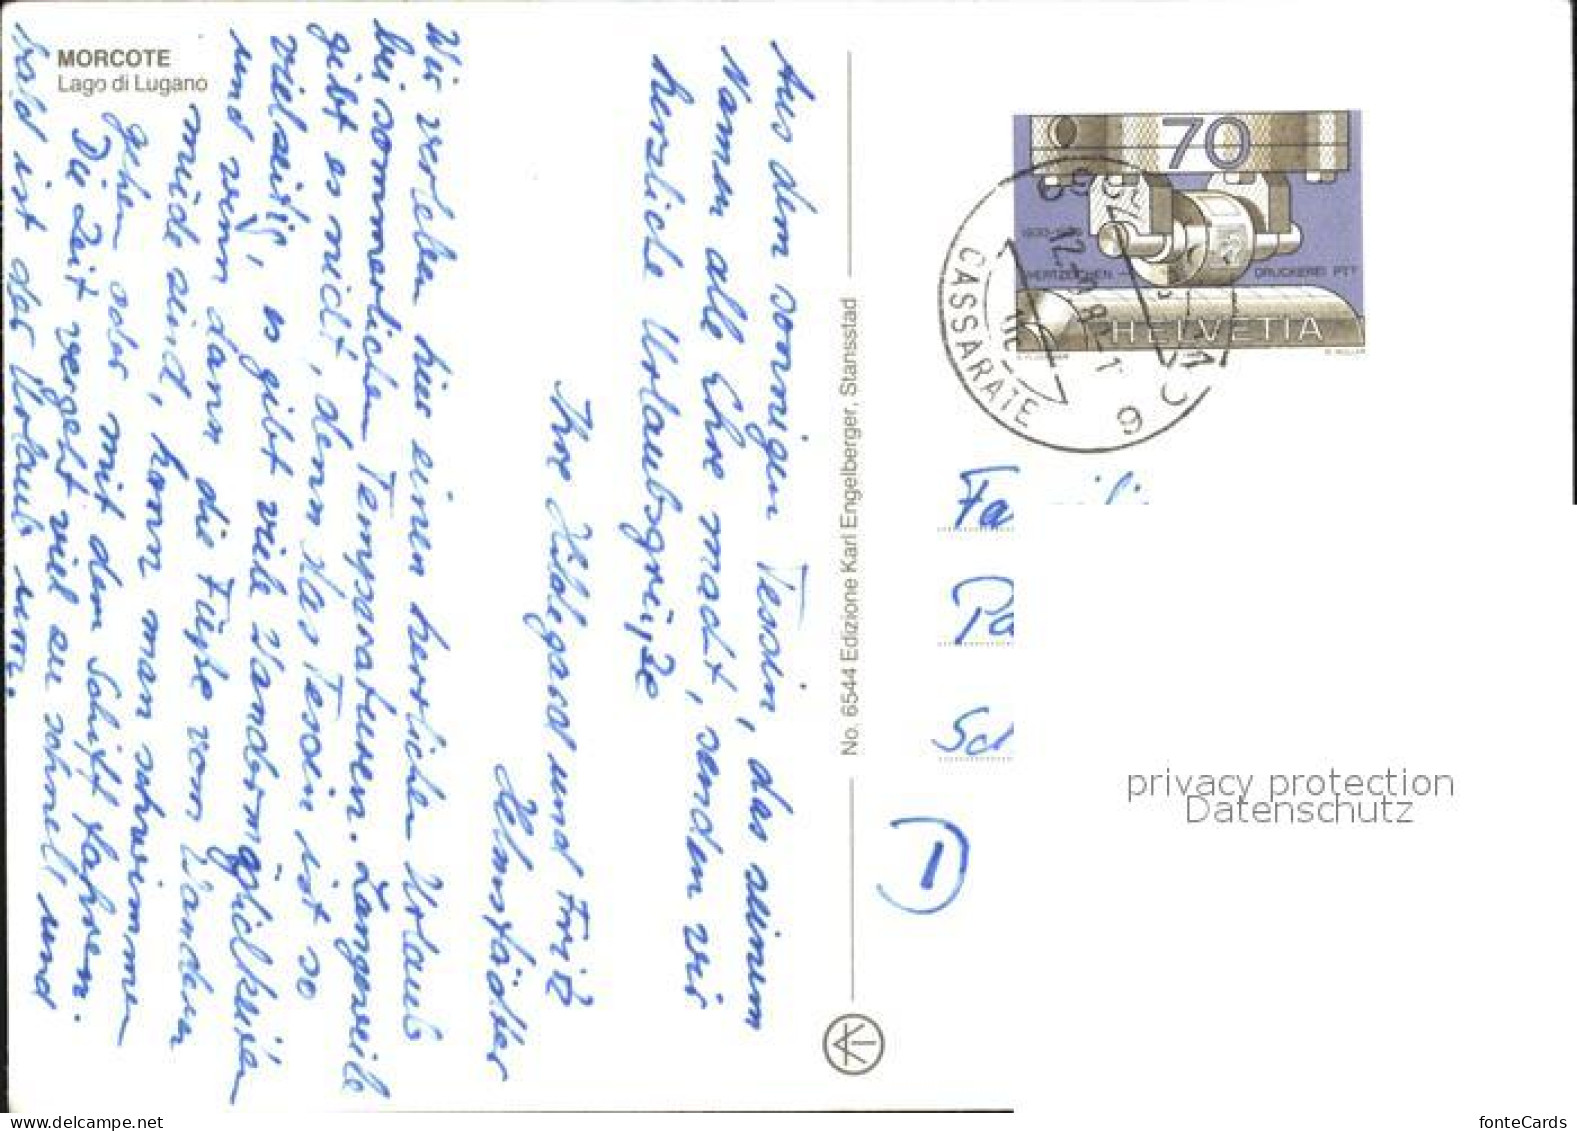 MORCOTE
Lago di Lugano
Aus dem sonnigen Tessin, das seinem
Namen alle Ehre macht, senden wir
herzliche Urlaubsgrüße
Ihre Hildegard und Fritz
Helmstädter
Wir verleben hier einen herrlichen Urlaub
bei sommerlichen Temperaturen. Langeweile
gibt es nicht, denn das Tessin ist so
vielseitig, es gibt viele Wandermöglichkeiten
und wenn dann die Füße vom Wandern
müde sind, kann man schwimmen
gehen oder mit dem Schiff fahren.
Die Zeit vergeht viel zu schnell und
bald ist der Urlaub um.
No. 6544 Edizione Karl Engelberger, Stansstad
70
1930-1980
WERTZEICHEN-
DRUCKEREI PTT
HELVETIA
CASSARATE
6
Fa
Pa
Sch
1
privacy protection
Datenschutz
fonteCards